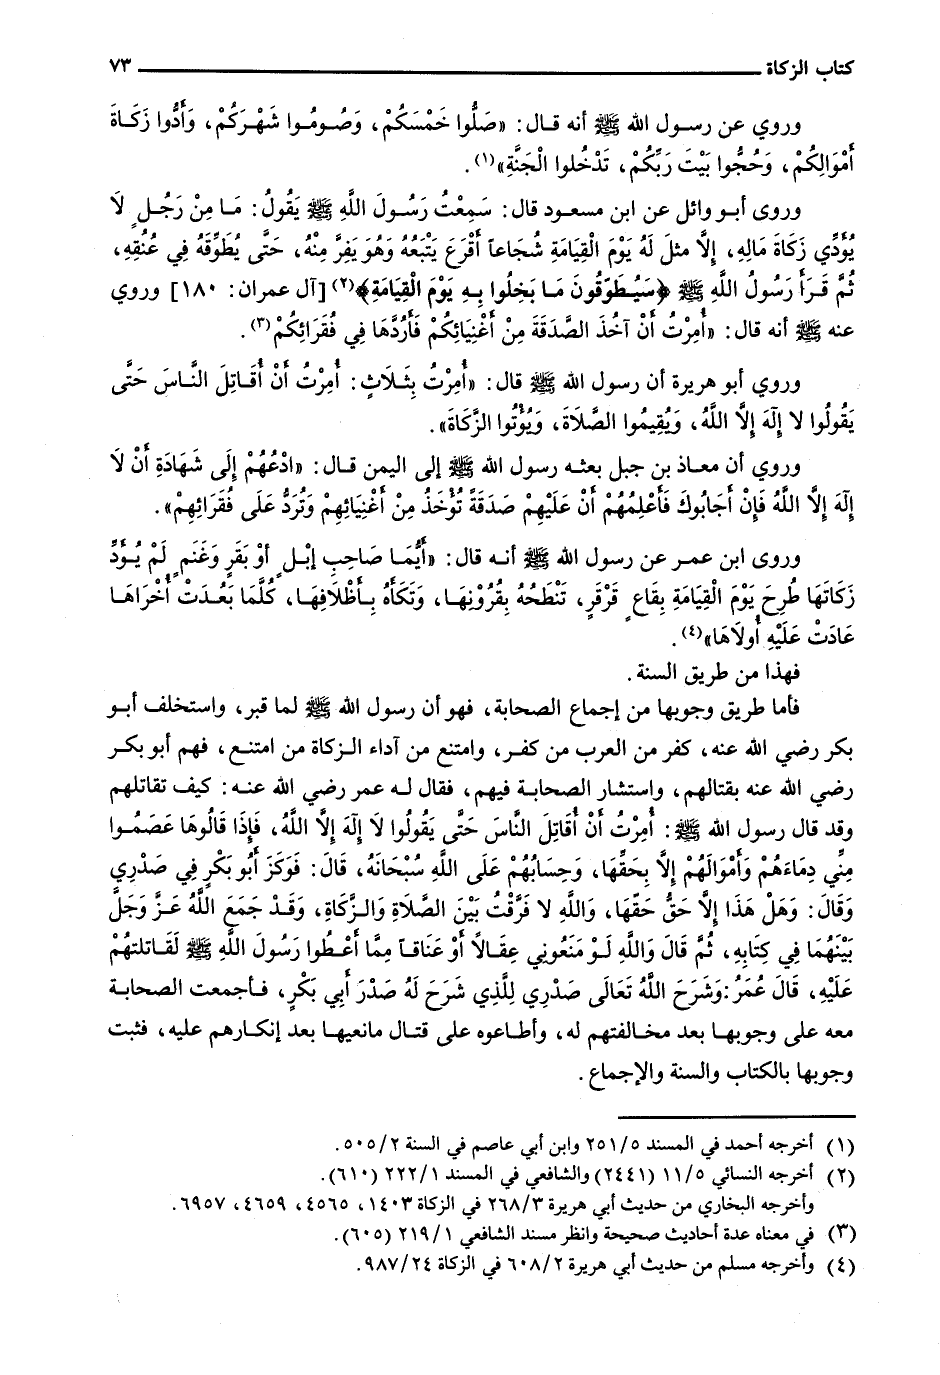 كتاب الزكاة ٧٣
وروي عن رسول الله ﷺ أنه قال: «صَلُّوا خَمْسَكُمْ، وَصُومُوا شَهْرَكُمْ، وَأَدُّوا زَكَاةَ
أَمْوَالِكُمْ، وَحُجُّوا بَيْتَ رَبِّكُمْ، تَدْخُلوا الْجَنَّةِ»(١).
وروى أبو وائل عن ابن مسعود قال: سَمِعْتُ رَسُولَ اللَّهِ ﷺ يَقُولُ: مَا مِنْ رَجُلٍ لَا
يُؤَدِّي زَكَاةَ مَالِهِ، إِلَّا مثلَ لَهُ يَوْمَ الْقِيَامَةِ شُجَاعاً أَقْرَعَ يَتْبَعُهُ وَهُوَ يَفِرَّ مِنْهُ، حَتَّى يُطَوِّقَهُ فِي عُنُقِهِ،
ثُمَّ قَرَأَ رَسُولُ اللَّهِ ﷺ ﴿سَيُطَوَّقُونَ مَا بَخِلُوا بِهِ يَوْمَ الْقِيَامَةِ﴾(٢) [آل عمران: ١٨٠] وروي
عنه ﷺ أنه قال: «أُمِرْتُ أَنْ آخُذَ الصَّدَقَةَ مِنْ أَغْنِيَائِكُمْ فَأَرُدَّهَا فِي فُقَرَائِكُمْ»(٣).
وروي أبو هريرة أن رسول الله ﷺ قال: «أُمِرْتُ بِثَلَاثٍ: أُمِرْتُ أَنْ أُقَاتِلَ النَّاسَ حَتَّى
يَقُولُوا لا إِلَهَ إِلَّا اللَّهُ، وَيُقِيمُوا الصَّلَاةَ، وَيُؤْتُوا الزَّكَاةَ».
وروي أن معاذ بن جبل بعثه رسول الله ﷺ إلى اليمن قال: «ادْعُهُمْ إِلَى شَهَادَةِ أَنْ لَا
إِلَهَ إِلَّا اللَّهُ فَإِنْ أَجَابُوكَ فَأَعْلِمُهُمْ أَنْ عَلَيْهِمْ صَدَقَةً تُؤْخَذُ مِنْ أَغْنِيَائِهِمْ وَتُرَدُّ عَلَى فُقَرَائِهِمْ».
وروى ابن عمر عن رسول الله ﷺ أنه قال: «أَيُّمَا صَاحِبِ إِبْلٍ أوْ بَقَرٍ وَغَنَمٍ لَمْ يُؤَدِّ
زَكَاتَهَا طُرِحَ يَوْمَ الْقِيَامَةِ بِقَاعٍ قَرْقَرٍ، تَنْطَحُهُ بِقُرُونِهَا، وَتَكَأُهُ بِأَظْلَافِهَا، كُلَّمَا بَعُدَتْ أُخْرَاهَا
عَادَتْ عَلَيْهِ أُولَاهَا»(٤).
فهذا من طريق السنة.
فأما طريق وجوبها من إجماع الصحابة، فهو أن رسول الله ﷺ لما قبر، واستخلف أبو
بكر رضي الله عنه، كفر من العرب من كفر، وامتنع من آداء الزكاة من امتنع، فهم أبو بكر
رضي الله عنه بقتالهم، واستشار الصحابة فيهم، فقال له عمر رضي الله عنه: كيف تقاتلهم
وقد قال رسول الله ﷺ: أُمِرْتُ أَنْ أُقَاتِلَ النَّاسَ حَتَّى يَقُولُوا لَا إِلَهَ إِلَّا اللَّهُ، فَإِذَا قَالُوهَا عَصَمُوا
مِنِّي دِمَاءَهُمْ وَأَمْوَالَهُمْ إِلَّا بِحَقِّهَا، وَحِسَابُهُمْ عَلَى اللَّهِ سُبْحَانَهُ، قَالَ: فَوَكَزَ أَبُو بَكْرٍ فِي صَدْرِي
وَقَالَ: وَهَلْ هَذَا إِلَّا حَقُّ حَقِّهَا، وَاللَّهِ لا فَرَّقْتُ بَيْنَ الصَّلَاةِ وَالزَّكَاةِ، وَقَدْ جَمَعَ اللَّهُ عَزَّ وَجَلَّ
بَيْنَهُمَا فِي كِتَابِهِ، ثُمَّ قَالَ وَاللَّهِ لَوْ مَنَعُونِي عِقَالاً أَوْ عَنَاقاً مِمَّا أَعْطُوا رَسُولَ اللَّهِ ﷺ لَقَاتلتهُمْ
عَلَيْهِ، قَالَ عُمَرُ: وَشَرَحَ اللَّهُ تَعَالَى صَدْرِي لِلَّذِي شَرَحَ لَهُ صَدْرَ أَبِي بَكْرٍ، فأجمعت الصحابة
معه على وجوبها بعد مخالفتهم له، وأطاعوه على قتال مانعيها بعد إنكارهم عليه، فثبت
وجوبها بالكتاب والسنة والإجماع.
(١) أخرجه أحمد في المسند ٢٥١/٥ وابن أبي عاصم في السنة ٥٠٥/٢.
(٢) أخرجه النسائي ١١/٥ (٢٤٤١) والشافعي في المسند ٢٢٢/١ (٦١٠).
وأخرجه البخاري من حديث أبي هريرة ٢٦٨/٣ في الزكاة ١٤٠٣، ٤٥٦٥، ٤٦٥٩، ٦٩٥٧.
(٣) في معناه عدة أحاديث صحيحة وانظر مسند الشافعي ٢١٩/١ (٦٠٥).
(٤) وأخرجه مسلم من حديث أبي هريرة ٦٠٨/٢ في الزكاة ٩٨٧/٢٤.